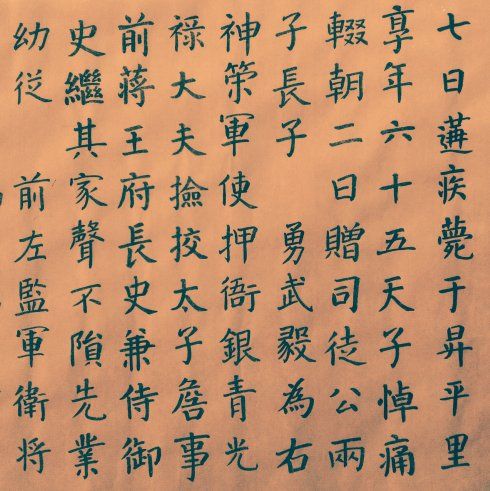 七日遘疾薨于昇平里
享年六十五天子悼痛
輟朝二日贈司徒公兩
子長子 勇武毅為右
神筞軍使押衙銀青光
禄大夫撿挍太子詹事
前蔣王府長史兼侍御
史繼其家聲不隕先業
幼従 前左監軍衛将